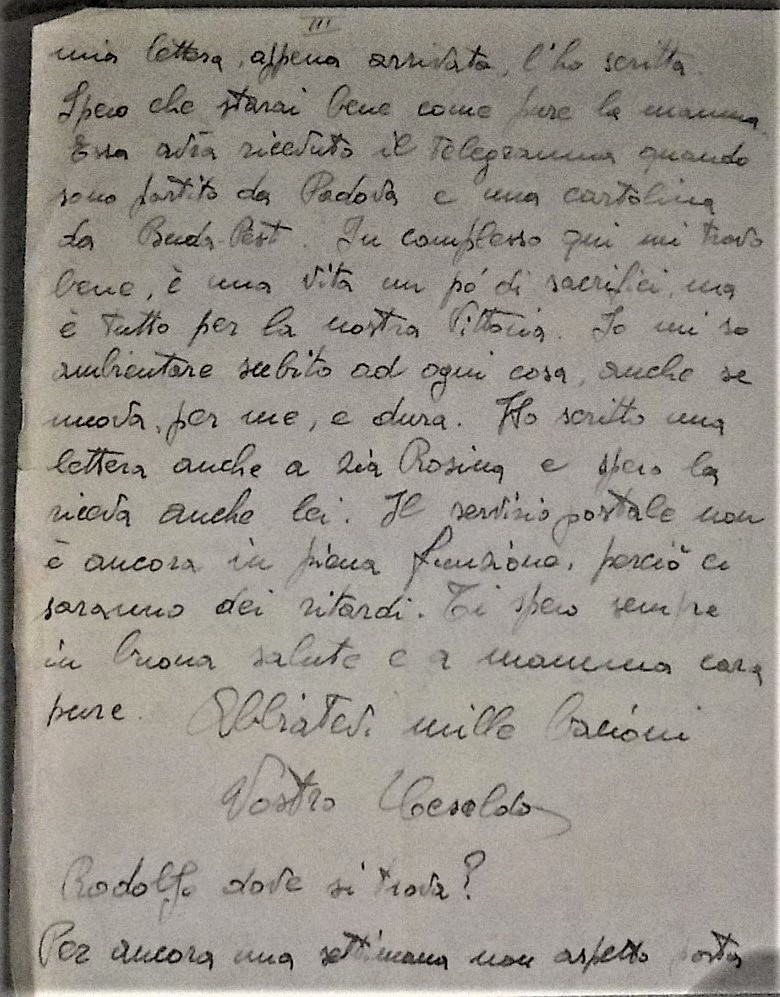 III
mia lettera, appena arrivata, l'ho scritta.
Spero che starai bene come pure la mamma.
Essa avrà ricevuto il telegramma quando
sono partito da Padova e una cartolina
da Buda-Pest. In complesso qui mi trovo
bene, è una vita un pó di sacrifici, ma
è tutto per la nostra Vittoria. Io mi so
ambientare subito ad ogni cosa, anche se
nuova, per me, e dura. Ho scritto una
lettera anche a zia Rosina e spero la
riceva anche lei. Il servizio postale non
è ancora in piena funzione, perciò ci
saranno dei ritardi. Ti spero sempre
in buona salute e a mamma cara
pure. Abbiatevi mille bacioni
Vostro
Rodolfo dove si trova?
Per ancora una settimana non aspetto posta